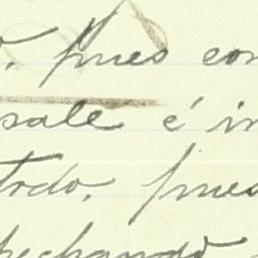 , pues con
sale é in
todo, pues
pechando